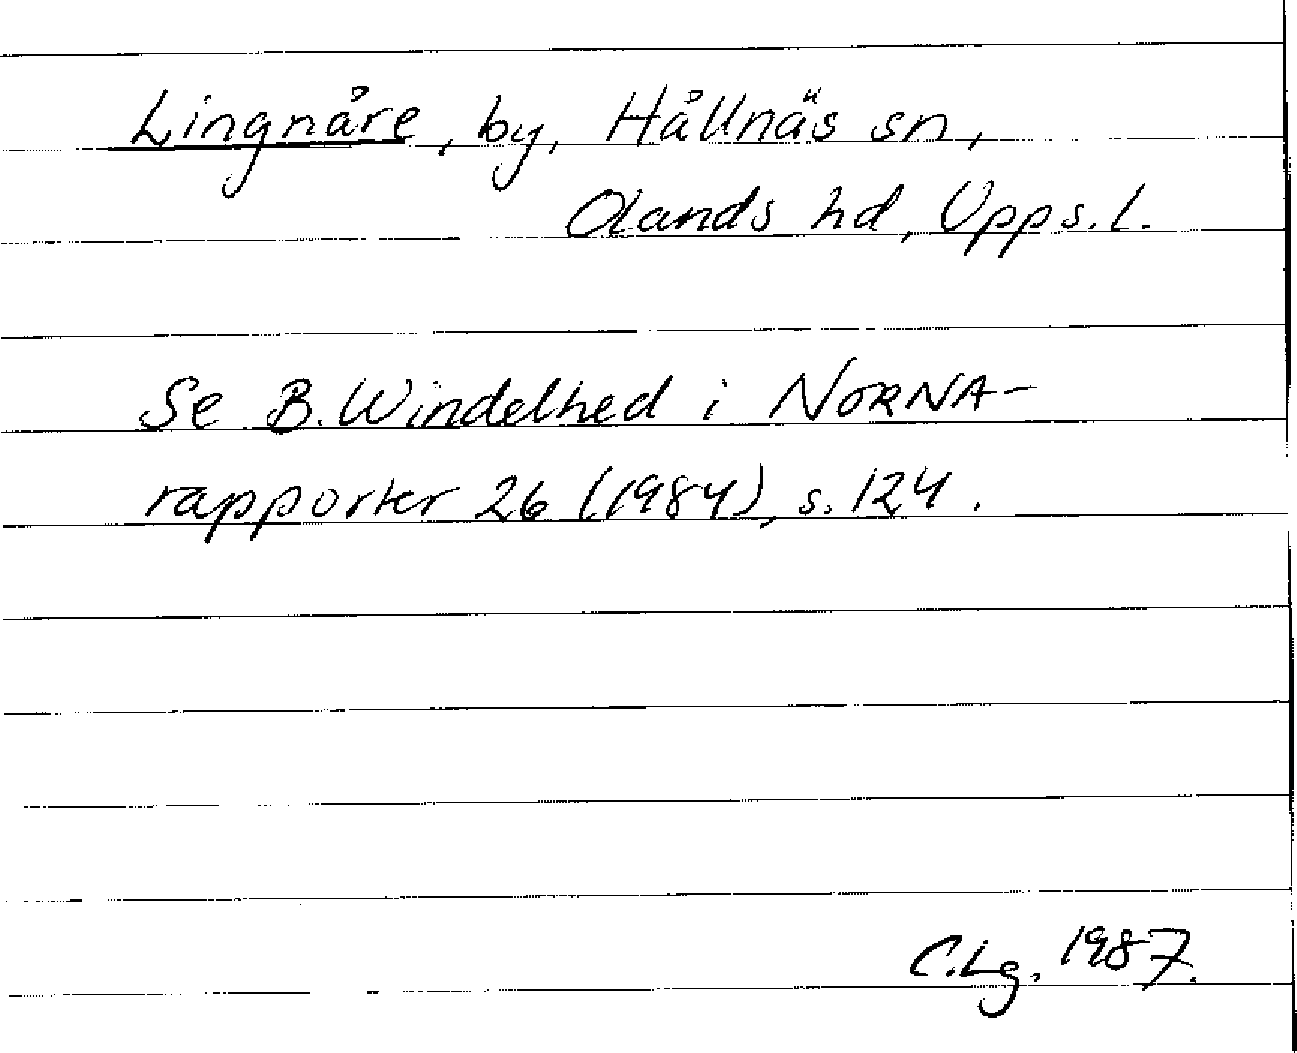 Lingnåre, by, Hållnäs sn,
Olands hd, Upps. l.
Se B. Windelhed i NORNA-
rapporter 26 (1984), s. 124.
C. Lg. 1987.